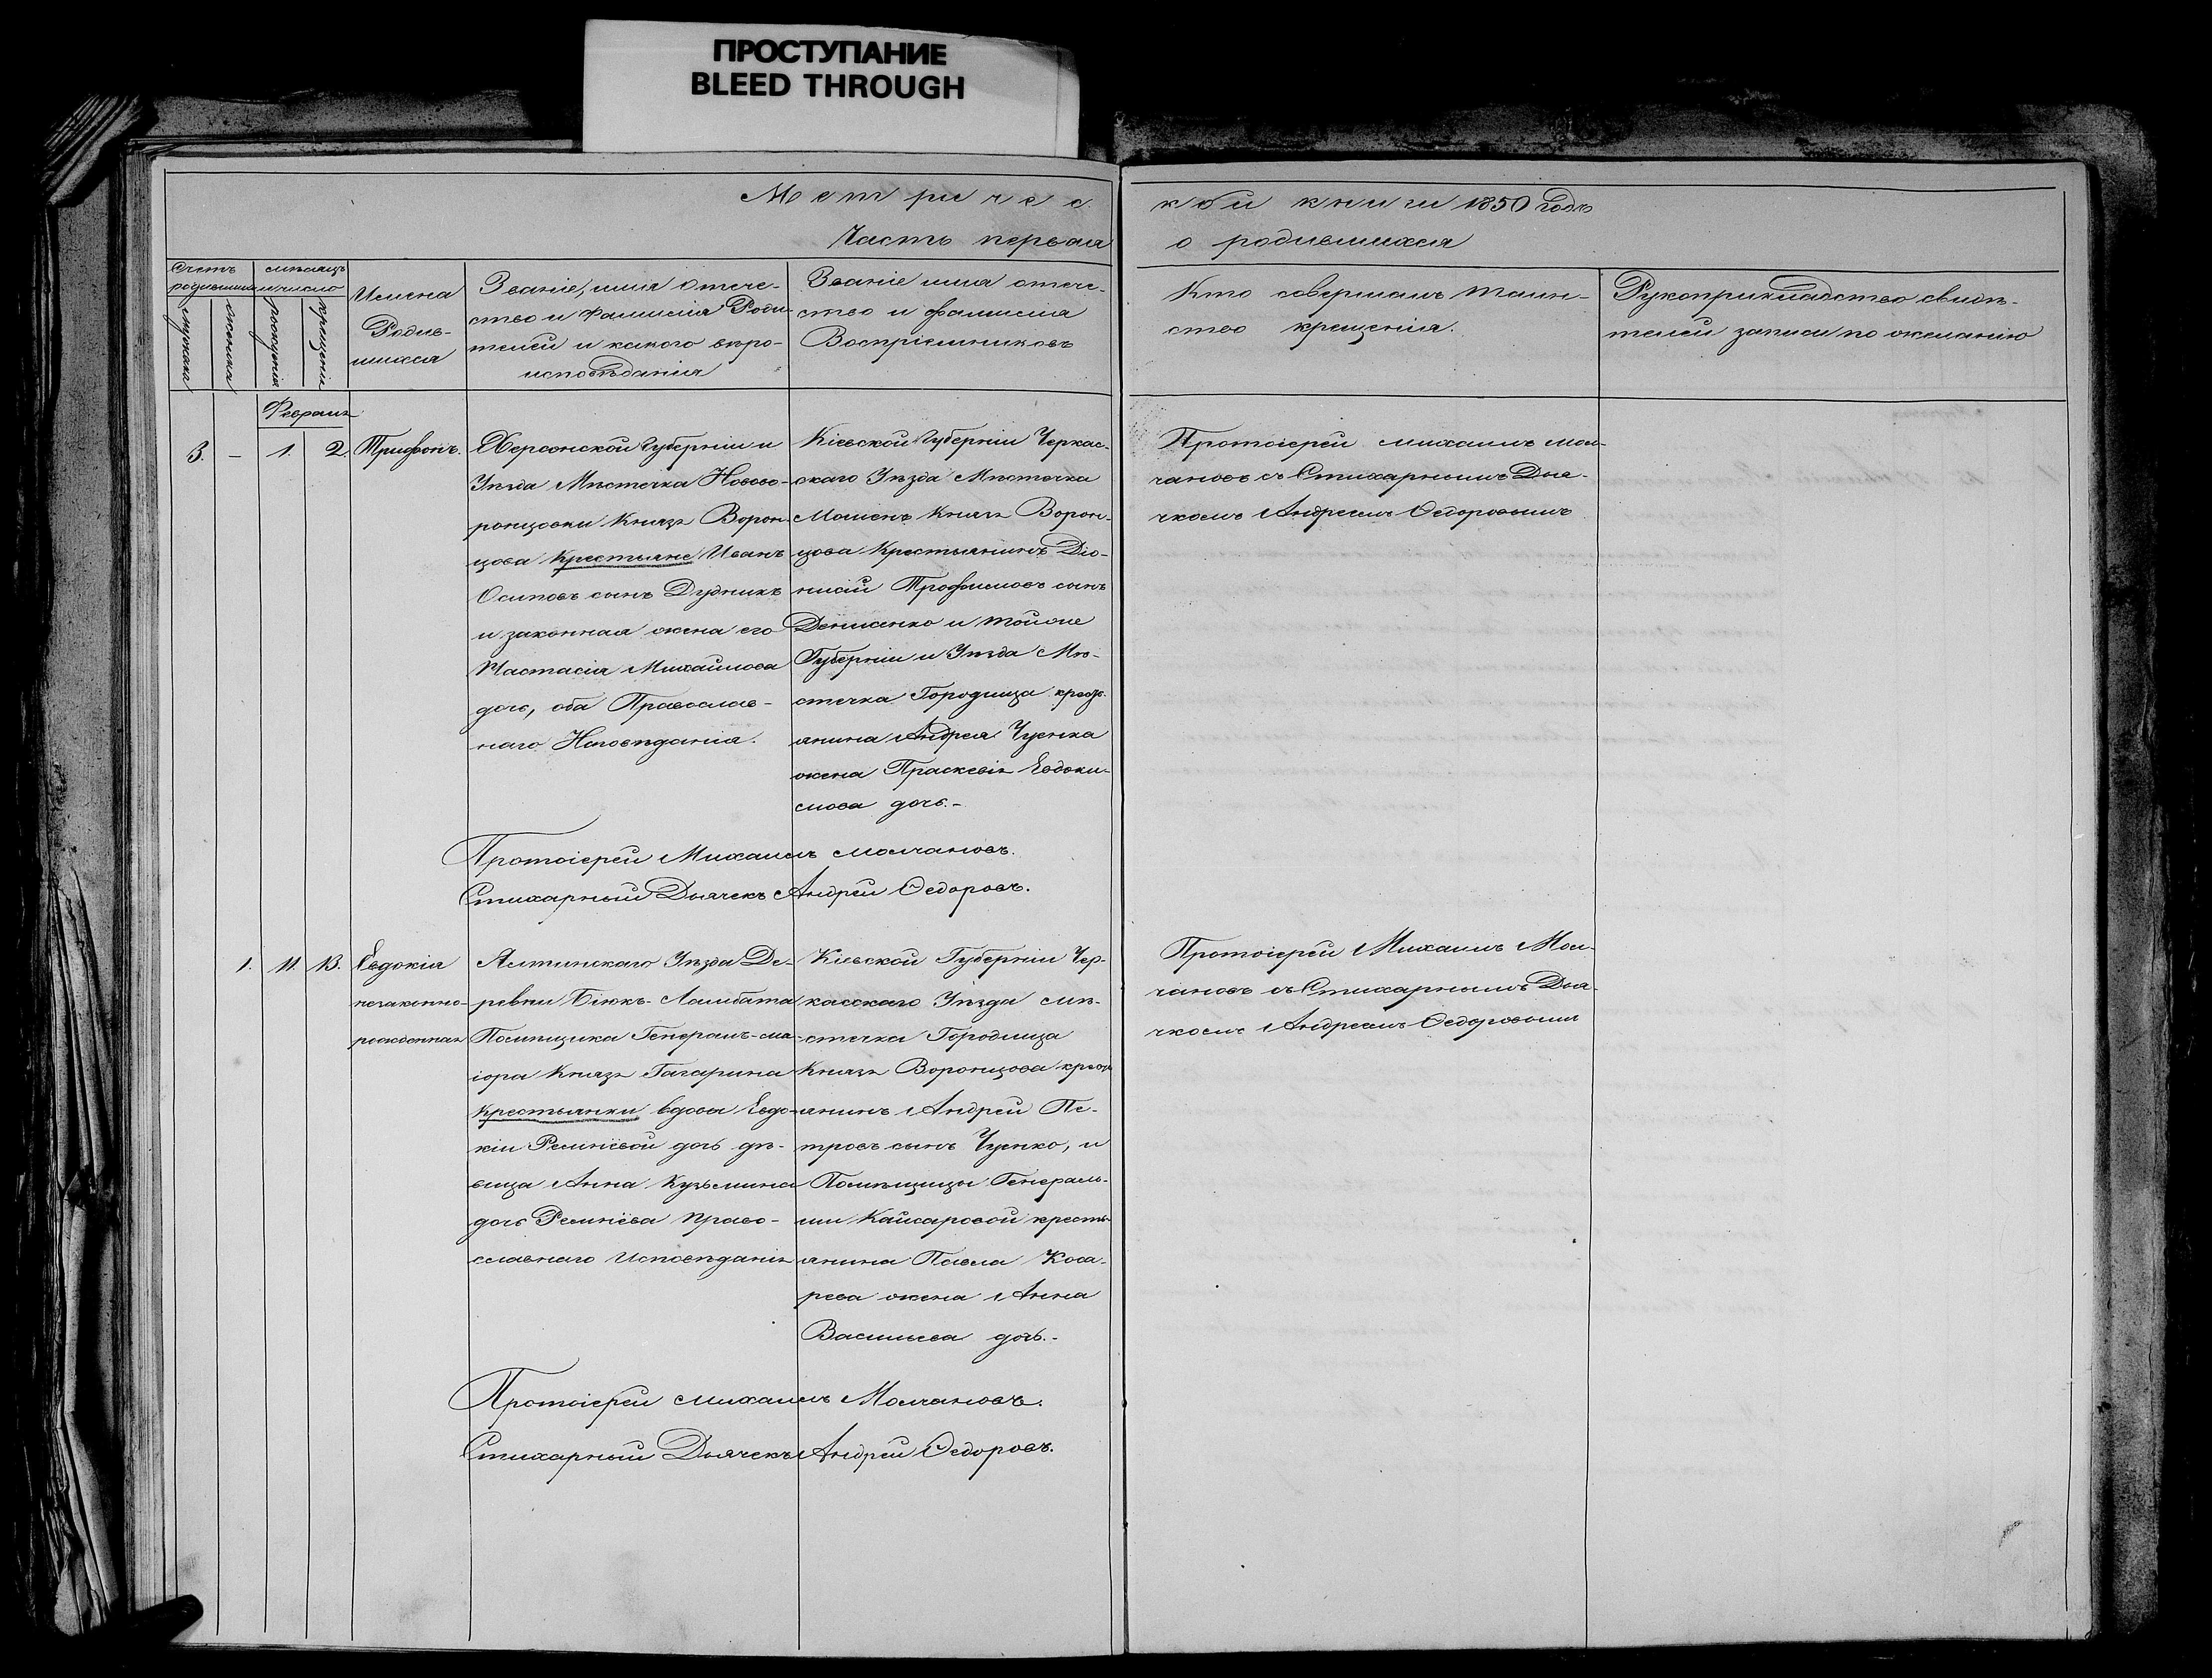 ПРОСТУПАНИЕ
BLEED THROUGH
Метричес
кой книги 1850 года
Часть первая
о родившихся
Счетъ родившихся
мужска
женска
мѣсяцъ и число
рожденія
крещенія
Имена
Родив-
шихся
Званіе, имя отече-
ство и Фамилія Роди-
телей и какого вѣро-
исповѣданія
Званіе имя отече-
ство и фамилія
Воспріемниковъ
Кто совершалъ таин-
ство крещенія.
Рукоприкладство свидѣ-
телей записи по желанію
Февраль
3.
-
1.
2.
Трифонъ.
Херсонской Губерніи и
Уѣзда Мѣстечка Новово-
ронцовки Князя Ворон-
цова Крестьяне Иванъ
Осиповъ сынъ Дудникъ
и законная жена его
Настасія Михайлова
дочь, оба Православ-
наго Исповѣданія.
Кіевской Губерніи Черкас-
скаго Уѣзда Мѣстечка
Мошенъ Князя Ворон-
цова Крестьянинъ Діо-
нисій Трофимовъ сынъ
Деншенко и той же
Губерніи и Уѣзда Мѣ-
стечка Городища крестъ-
янина Андрея Чуенка
жена Праскевія Евдоки-
мова дочь.-
Протоіерей Михаилъ Мол-
чановъ съ Стихарнымъ Дья-
чкомъ Андреемъ Ѳедоровымъ
Протоіерей Михаилъ Молчановъ.
Стихарный Дьячекъ Андрей Ѳедоровъ.
1.
11.
13.
Евдокія
незаконно-
рожденная
Ялтинскаго Уѣзда Де-
ревни Біюкъ-Ламбата
Помѣщика Генералъ-ма-
іора Князя Гагарина
Крестьянки вдовы Евдо-
кіи Ремнёвой дочь дѣ-
вица Анна Кузьмина
дочь Ремнёва Право-
славнаго Исповѣданія
Кіевской Губерніи Чер-
касскаго Уѣзда мѣ-
стечка Городища
Князя Воронцова крестъ-
янинъ Андрей Пе-
тровъ сынъ Чуенко, и
Помѣщицы Генераль-
ши Кайсаровой кресть-
янина Павла Коса-
рева жена Анна
Васильева дочь.-
Протоіерей Михаилъ Мол-
чановъ съ Стихарнымъ Дья-
чкомъ Андреемъ Ѳедоровымъ
Протоіерей Михаилъ Молчановъ.
Стихарный Дьячекъ Андрей Ѳедоровъ.